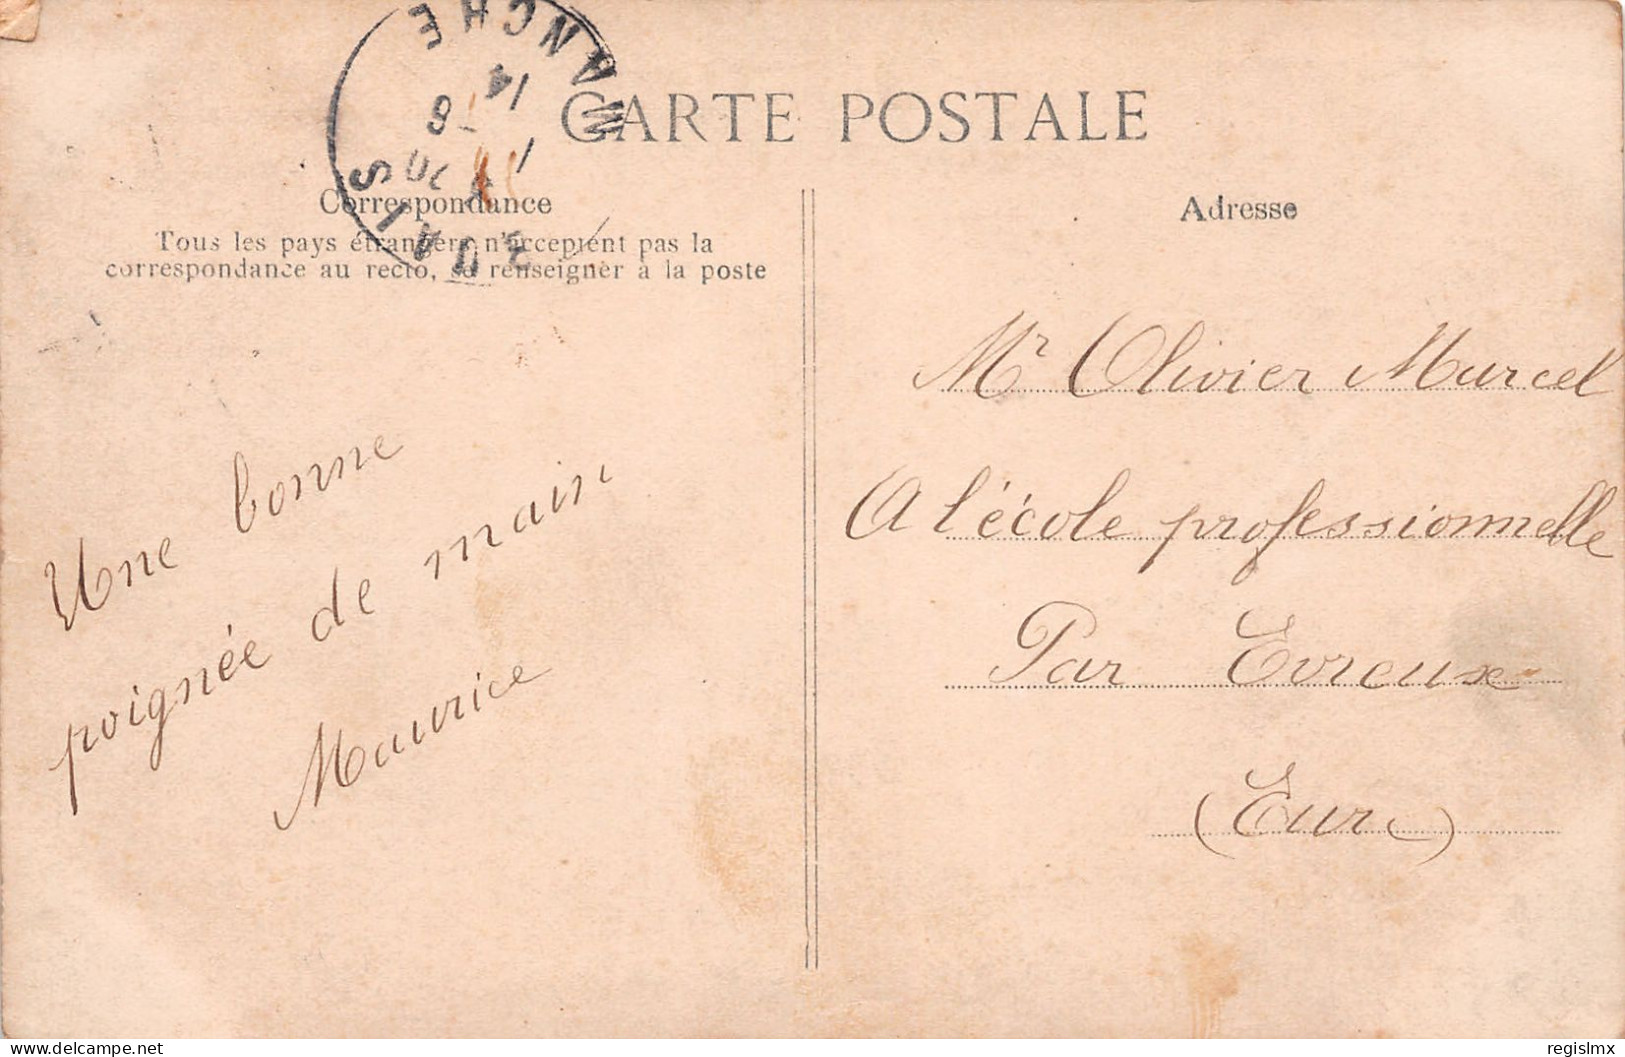 CARTE POSTALE
Correspondance
Tous les pays étrangers n'acceptent pas la
correspondance au recto, se renseigner à la poste
Adresse
MANCHE
Une bonne
poignée de main
Maurice
Mr Olivier Marcel
A l'école professionnelle
Par Evreux
(Eure)
www.delcampe.net
regislmx